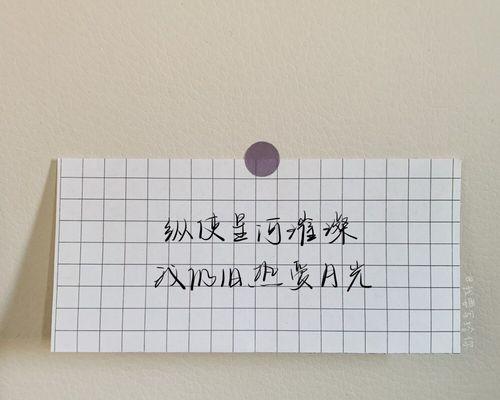 纵使星河璀璨
我仍旧热爱月光